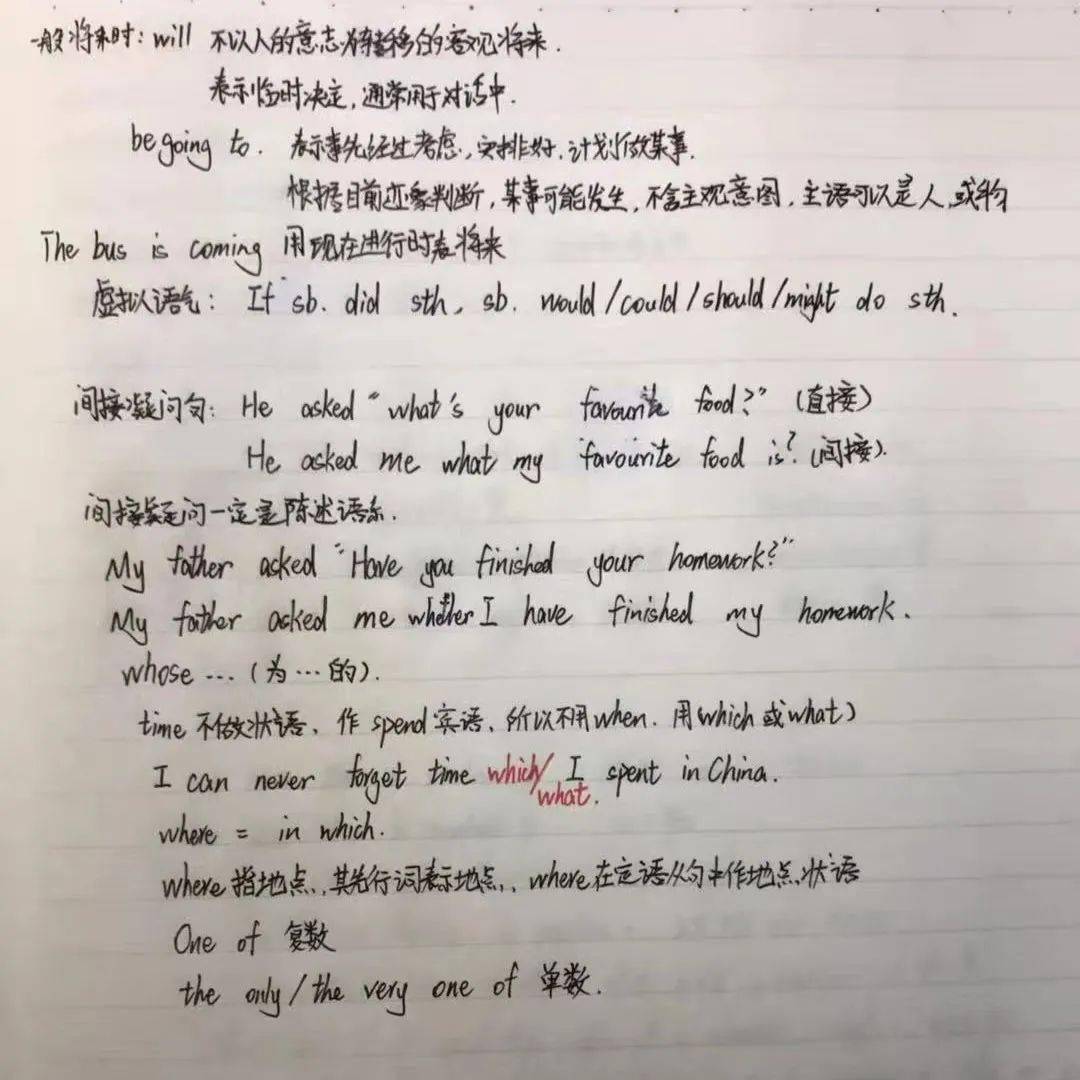 一般将来时: will 不以人的意志为转移的客观将来.
表示临时决定, 通常用于对话中.
be going to. 表示事先经过考虑, 安排好, 计划做某事.
根据目前迹象判断, 某事可能发生, 不含主观意图, 主语可以是人或物
The bus is coming 用现在进行时表将来
虚拟语气: If sb. did sth, sb. would/could/should/might do sth.
间接疑问句: He asked "what's your favourite food?" (直接)
He asked me what my favourite food is? (间接).
间接疑问一定是陈述语系.
My father asked "Have you finished your homework?"
My father asked me whether I have finished my homework.
whose …(为…的).
time 不做状语, 作 spend 宾语, 所以不用 when. 用 which 或 what)
I can never forget time which/what. I spent in China.
where = in which.
where 指地点, 其先行词表示地点, where 在定语从句中作地点状语
One of 复数
the only/the very one of 单数.